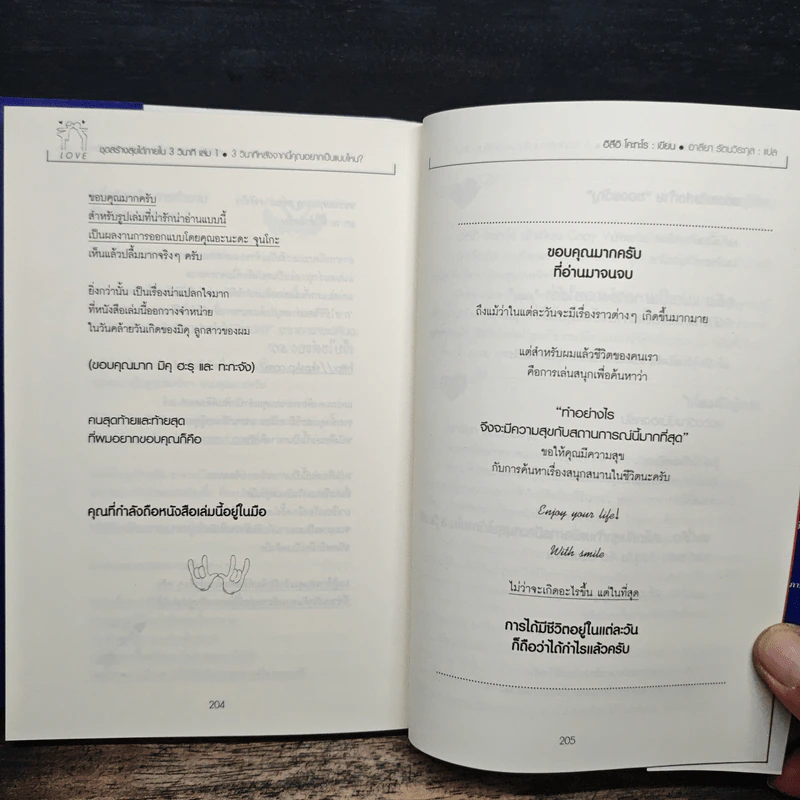 LOVE
ชุดสร้างสุขได้ภายใน 3 วินาที เล่ม 1 ● 3 วินาทีหลังจากนี้คุณอยากเป็นแบบไหน?
ขอบคุณมากครับ
สำหรับรูปเล่มที่น่ารักน่าอ่านแบบนี้
เป็นผลงานการออกแบบโดยคุณอะนะดะ จุนโกะ
เห็นแล้วปลื้มมากจริงๆ ครับ
ยิ่งกว่านั้น เป็นเรื่องน่าแปลกใจมาก
ที่หนังสือเล่มนี้ออกวางจำหน่าย
ในวันคล้ายวันเกิดของมิคุ ลูกสาวของผม
(ขอบคุณมาก มิคุ ฮะรุ และ ทะกะจัง)
คนสุดท้ายและท้ายสุด
ที่ผมอยากขอบคุณก็คือ
คุณที่กำลังถือหนังสือเล่มนี้อยู่ในมือ
204
ฮิสึอิ โคะทะโร : เขียน ● อาลียา รัตนวีระกุล : แปล
ขอบคุณมากครับ
ที่อ่านมาจนจบ
ถึงแม้ว่าในแต่ละวันจะมีเรื่องราวต่างๆ เกิดขึ้นมากมาย
แต่สำหรับผมแล้วชีวิตของคนเรา
คือการเล่นสนุกเพื่อค้นหาว่า
"ทำอย่างไร
จึงจะมีความสุขกับสถานการณ์นี้มากที่สุด"
ขอให้คุณมีความสุข
กับการค้นหาเรื่องสนุกสนานในชีวิตนะครับ
Enjoy your life!
With smile
ไม่ว่าจะเกิดอะไรขึ้น แต่ในที่สุด
การได้มีชีวิตอยู่ในแต่ละวัน
ก็ถือว่าได้กำไรแล้วครับ
205